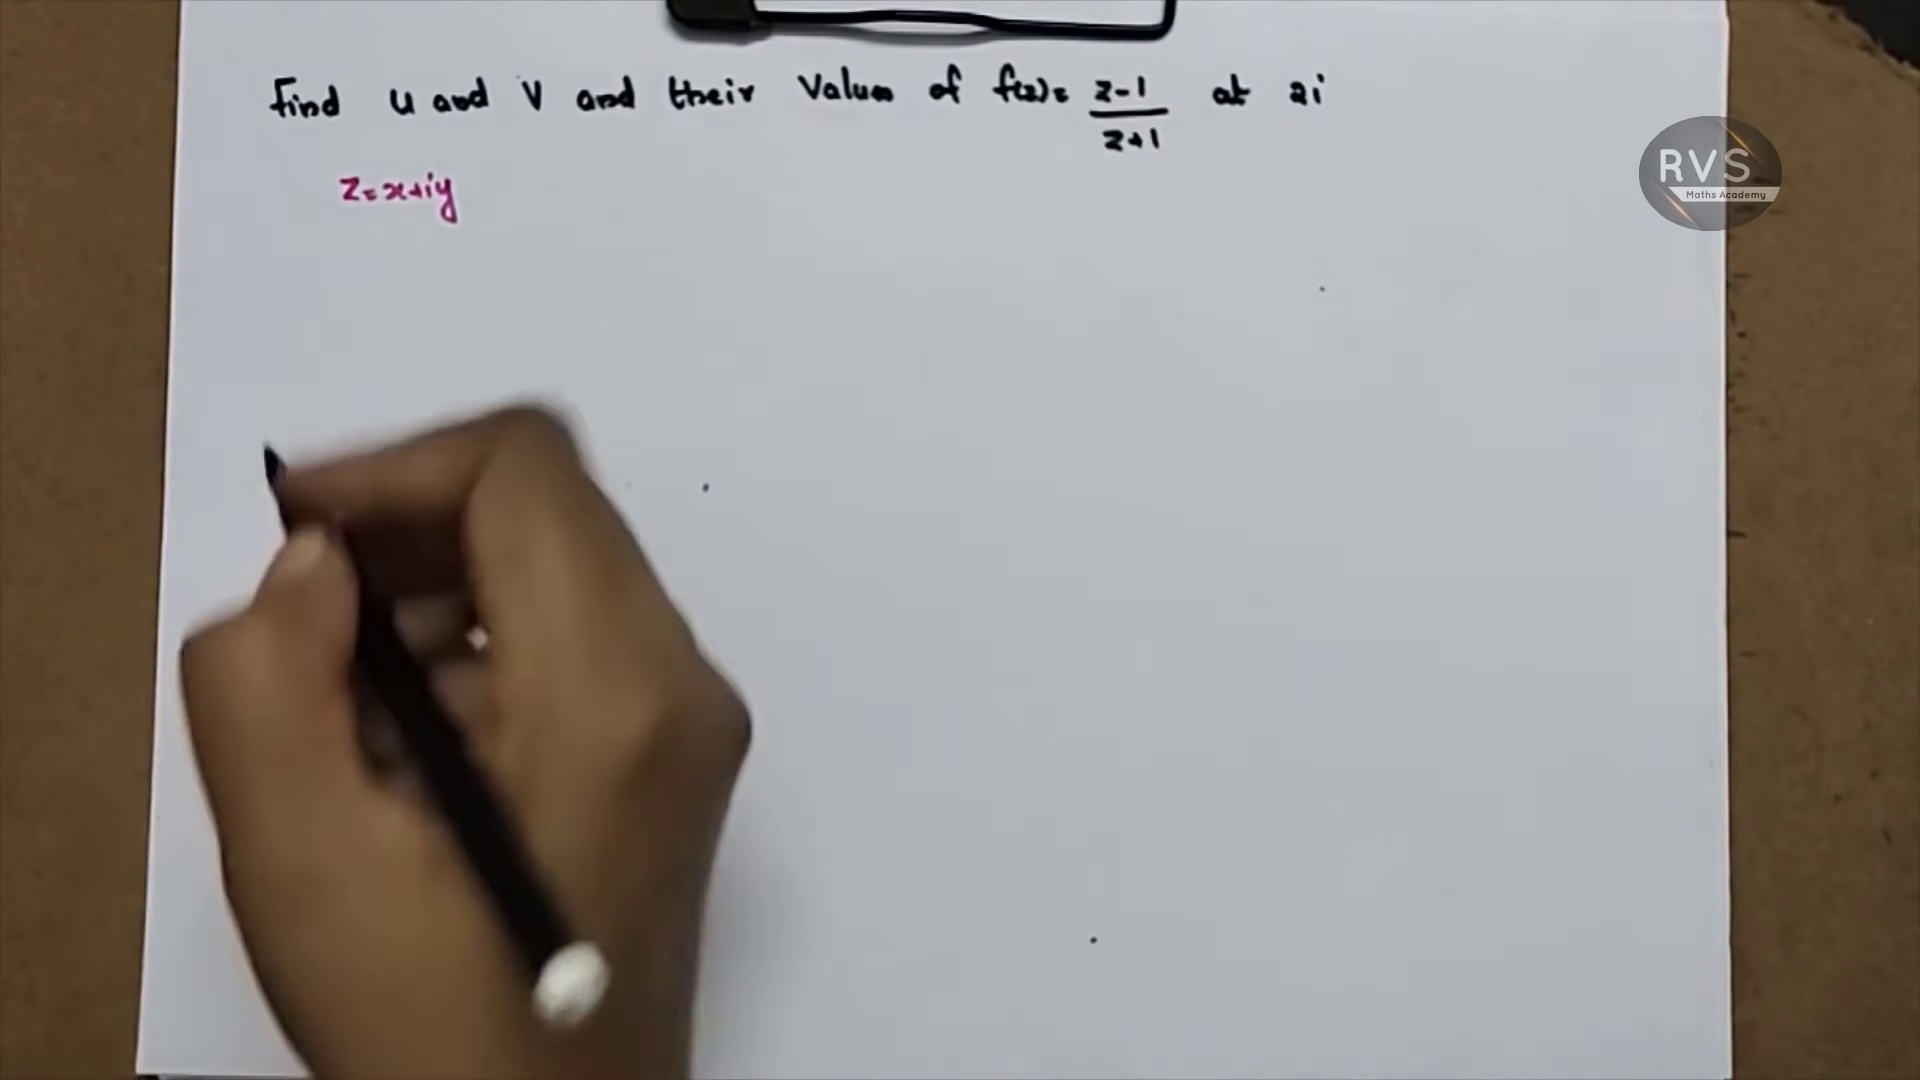 Find u and v and their values of f(z)= z-1 / z+1 at 2i
z=x+iy
RVS
Maths Academy